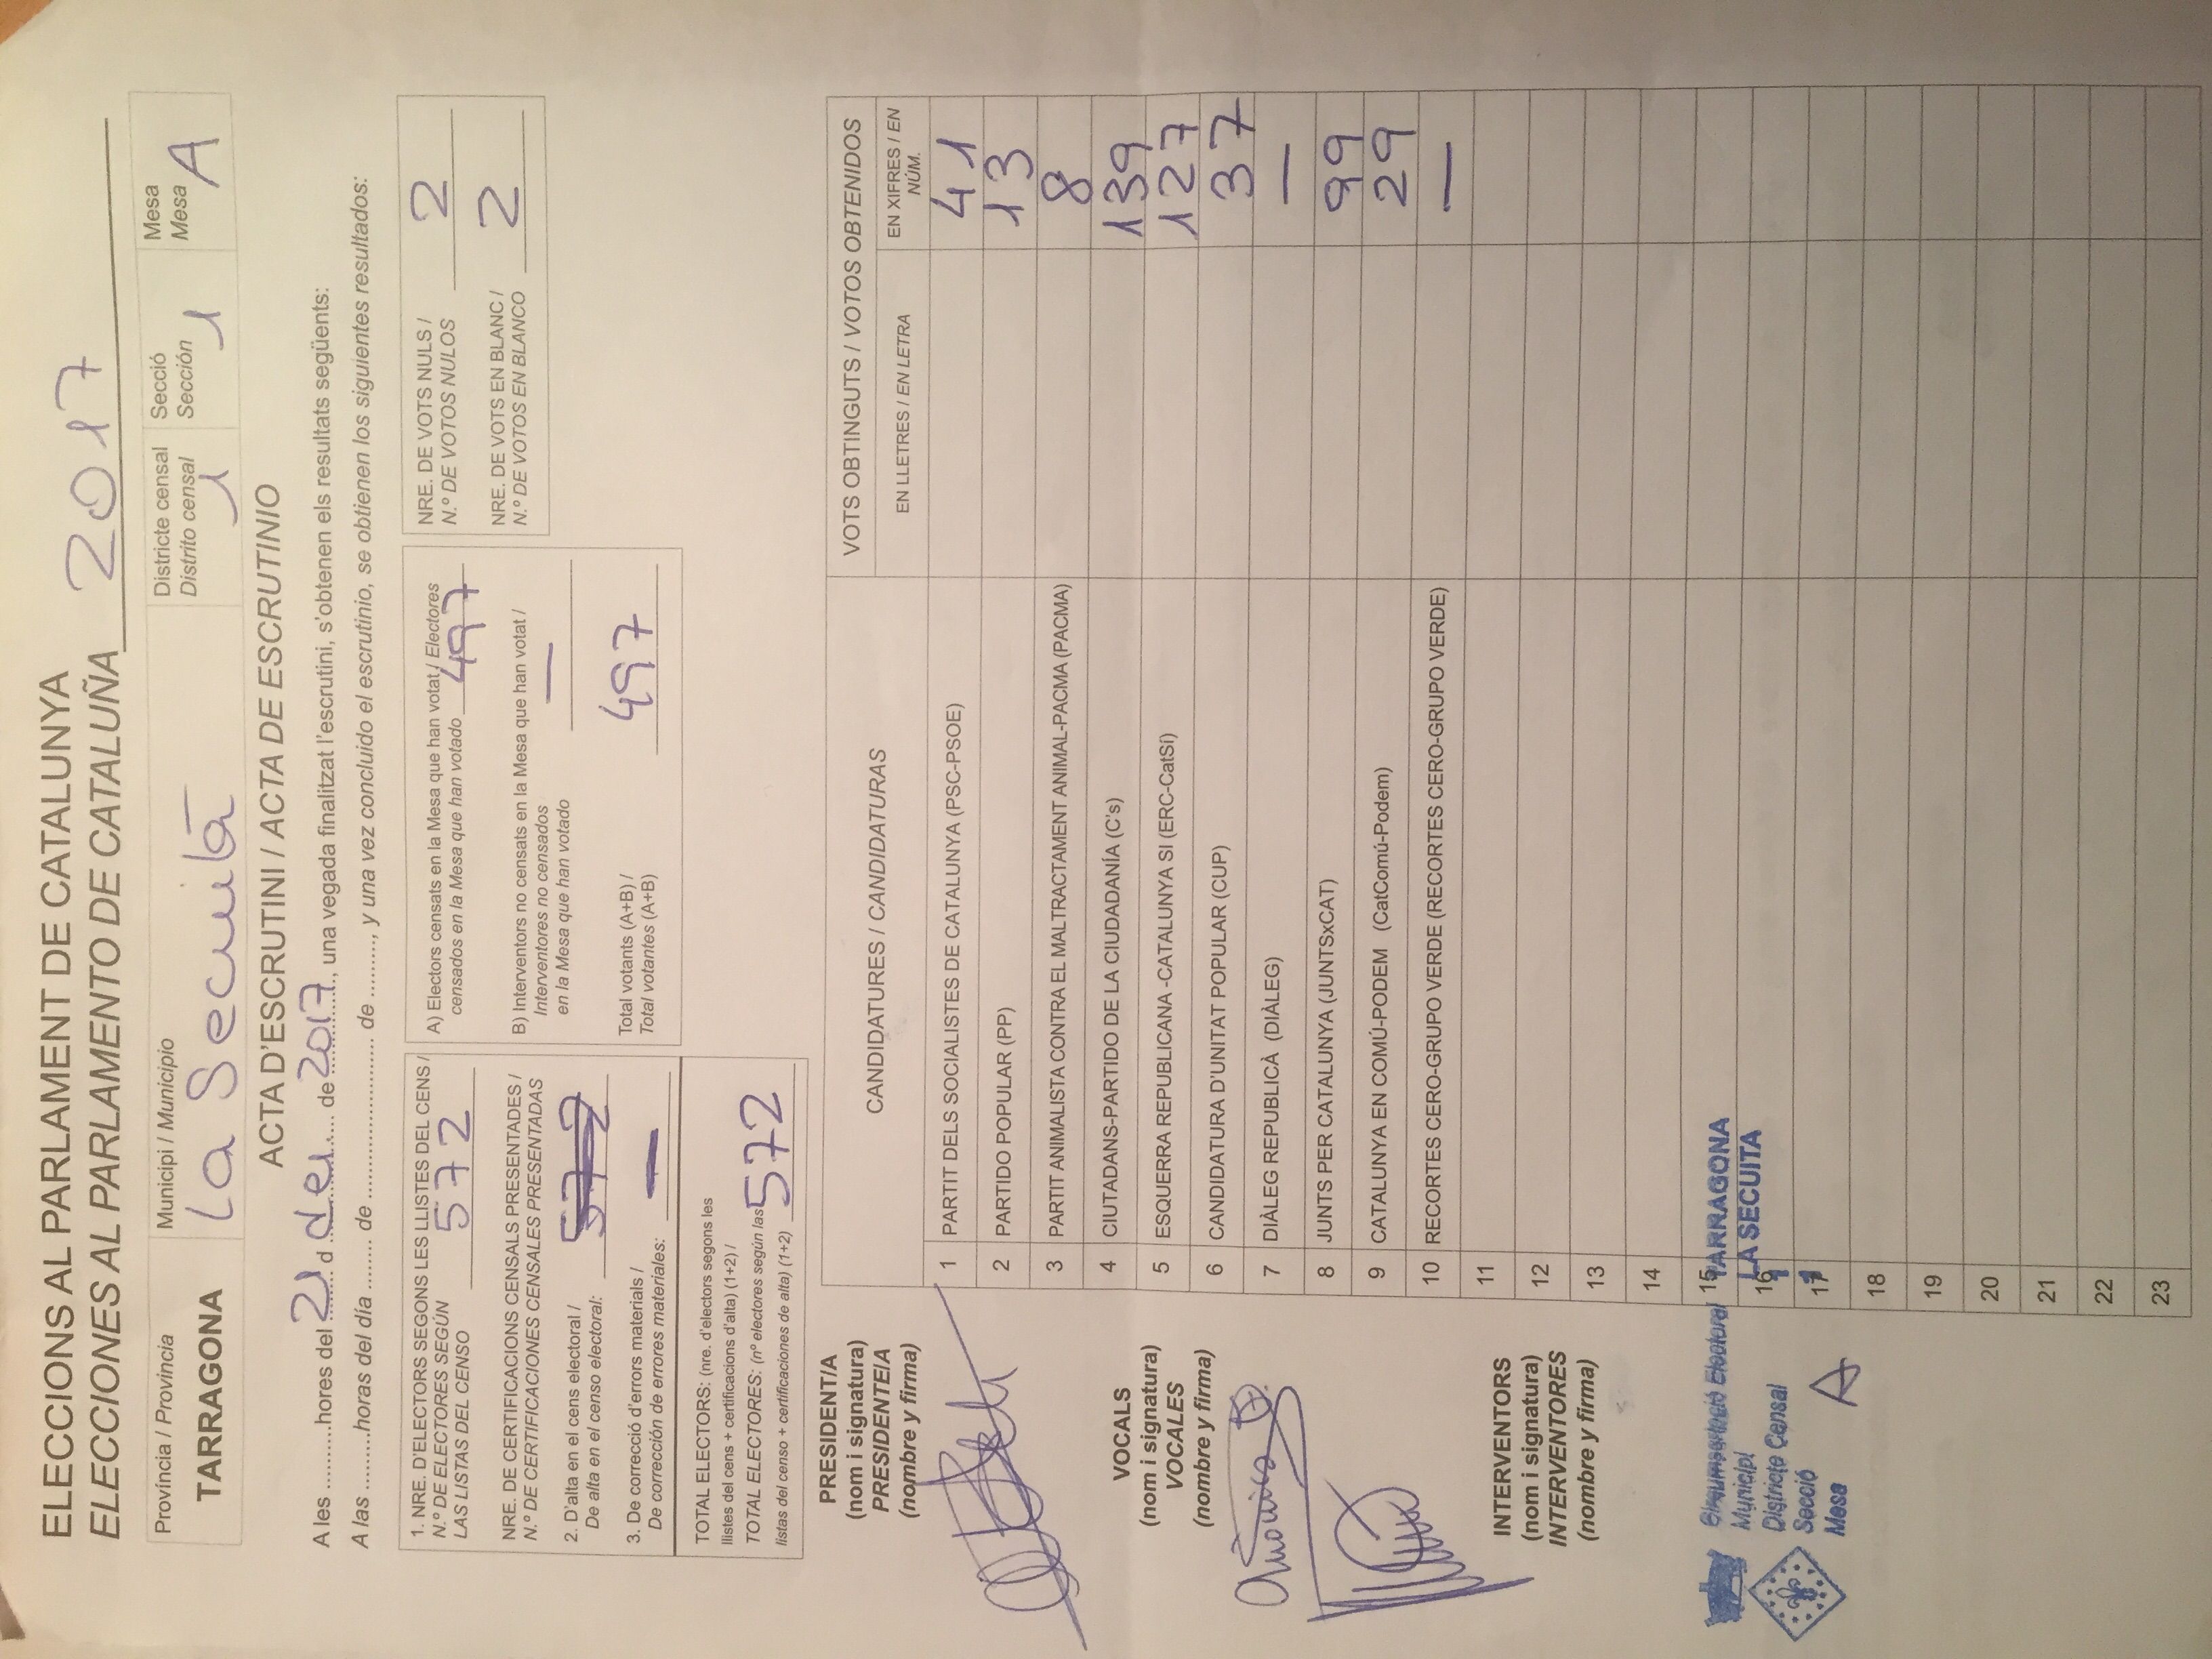 ELECCIONS AL PARLAMENT DE CATALUNYA
ELECCIONES AL PARLAMENTO DE CATALUÑA 2017
Província / Provincia
TARRAGONA
Municipi / Municipio
La Secuità
Districte censal
Distrito censal
1
Secció
Sección
1
Mesa
Mesa A
ACTA D'ESCRUTINI / ACTA DE ESCRUTINIO
A les ..........hores del 21 d des. de 2017, una vegada finalitzat l'escrutini, s'obtenen els resultats següents:
A las .........horas del día ........ de ......................... de ........., y una vez concluido el escrutinio, se obtienen los siguientes resultados:
1. NRE. D'ELECTORS SEGONS LES LLISTES DEL CENS /
N.º DE ELECTORES SEGÚN
LAS LISTAS DEL CENSO 572
NRE. DE CERTIFICACIONS CENSALS PRESENTADES /
N.º DE CERTIFICACIONES CENSALES PRESENTADAS
2. D'alta en el cens electoral /
De alta en el censo electoral: 572
3. De correcció d'errors materials /
De corrección de errores materiales: —
TOTAL ELECTORS: (nre. d'electors segons les
llistes del cens + certificacions d'alta) (1+2) /
TOTAL ELECTORES: (nº electores según las
listas del censo + certificaciones de alta) (1+2) 572
A) Electors censats en la Mesa que han votat / Electores
censados en la Mesa que han votado 497
B) Interventors no censats en la Mesa que han votat /
Interventores no censados
en la Mesa que han votado —
Total votants (A+B) /
Total votantes (A+B) 497
NRE. DE VOTS NULS /
N.º DE VOTOS NULOS 2
NRE. DE VOTS EN BLANC /
N.º DE VOTOS EN BLANCO 2
PRESIDENT/A
(nom i signatura)
PRESIDENTE/A
(nombre y firma)
VOCALS
(nom i signatura)
VOCALES
(nombre y firma)
INTERVENTORS
(nom i signatura)
INTERVENTORES
(nombre y firma)
CANDIDATURES / CANDIDATURAS
VOTS OBTINGUTS / VOTOS OBTENIDOS
EN LLETRES / EN LETRA
EN XIFRES / EN
NÚM.
1 PARTIT DELS SOCIALISTES DE CATALUNYA (PSC-PSOE) 41
2 PARTIDO POPULAR (PP) 13
3 PARTIT ANIMALISTA CONTRA EL MALTRACTAMENT ANIMAL-PACMA (PACMA) 8
4 CIUTADANS-PARTIDO DE LA CIUDADANÍA (C's) 139
5 ESQUERRA REPUBLICANA -CATALUNYA SI (ERC-CatSí) 127
6 CANDIDATURA D'UNITAT POPULAR (CUP) 37
7 DIÀLEG REPUBLICÀ (DIÀLEG) —
8 JUNTS PER CATALUNYA (JUNTSxCAT) 99
9 CATALUNYA EN COMÚ-PODEM (CatComú-Podem) 29
10 RECORTES CERO-GRUPO VERDE (RECORTES CERO-GRUPO VERDE) —
11
12
13
14
15
16
17
18
19
20
21
22
23
Circumscripció Electoral TARRAGONA
Municipi LA SECUITA
Districte Censal 1
Secció 1
Mesa A